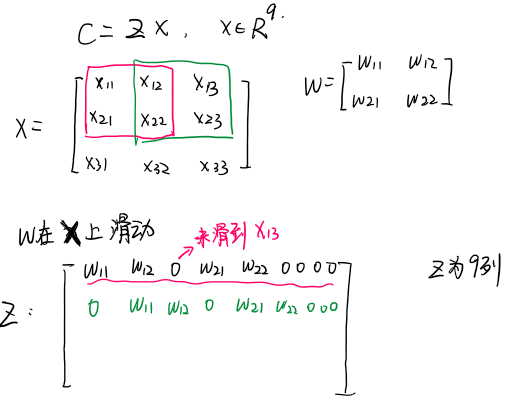 C = Z X , X ∈ R⁹.
X = [ x11 x12 x13
x21 x22 x23
x31 x32 x33 ]
W = [ w11 w12
w21 w22 ]
W在X上滑动
未滑到 x13
Z: [ w11 w12 0 w21 w22 0 0 0 0
0 w11 w12 0 w21 w22 0 0 0 ]
Z为9列